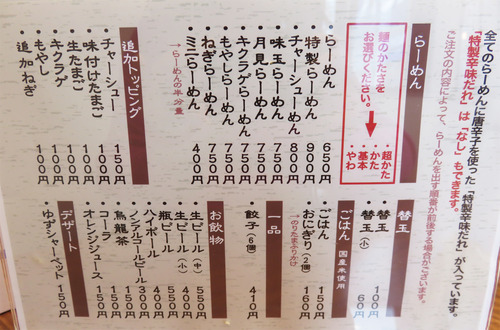 全てのらーめんに唐辛子を使った「特製辛味だれ」が入っています。
「特製辛味だれ」は「なし」もできます。
ご注文の内容によって、らーめんを出す順番が前後する場合がございます。
らーめん
麺のかたさを
お選びください。
超かた
かた
基本
やわ
らーめん 650円
特製らーめん 900円
チャーシューめん 800円
味玉らーめん 750円
月見らーめん 750円
キクラゲらーめん 750円
もやしらーめん 750円
ねぎらーめん 750円
ミニらーめん
→らーめんの半分量
追加トッピング
チャーシュー 150円
味付けたまご 100円
生たまご 100円
キクラゲ 100円
もやし 100円
追加ねぎ 100円
替玉
替玉 100円
替玉(小) 60円
ごはん 国産米使用
ごはん 100円
おにぎり(2個) 160円
→のりたまふりかけ
一品
餃子(6個) 410円
お飲物
生ビール(中) 550円
生ビール(小) 400円
瓶ビール 550円
ハイボール 400円
ノンアルコールビール 300円
烏龍茶 150円
コーラ 150円
オレンジジュース 150円
デザート
ゆずシャーベット 150円